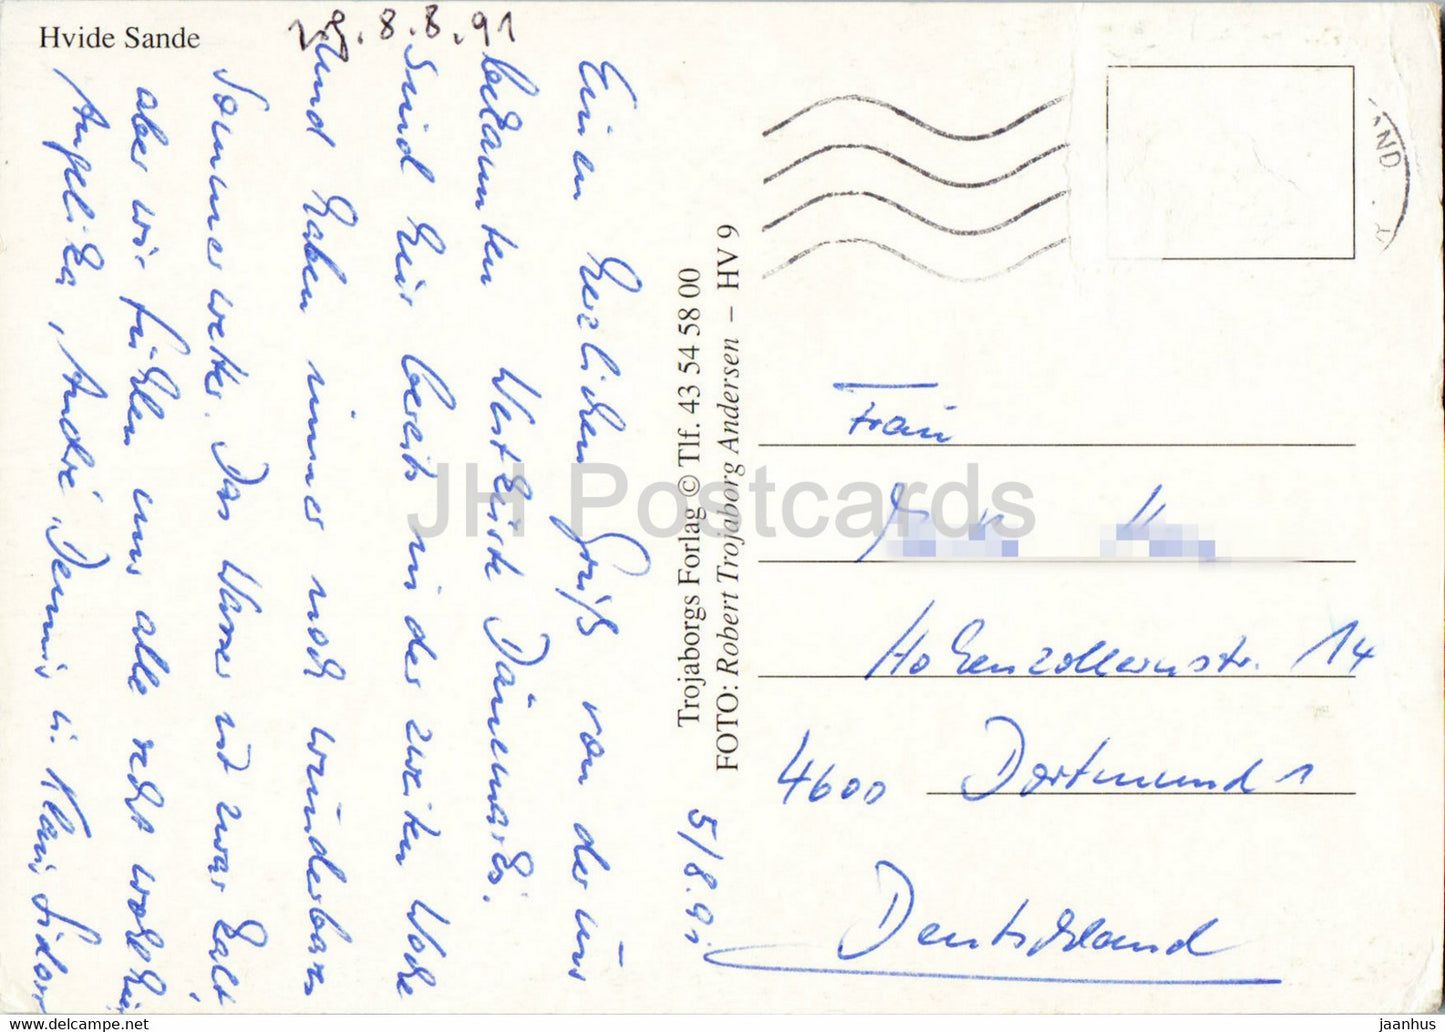 Hvide Sande
8.8.91
Einen herzlichen Gruß von der uns
bekannten Westküste Dänemarks.
Sind hier bereits in der zweiten Woche
und haben immer noch wunderbares
Sommerwetter. Das Wasser ist zwar kalt,
aber wir fühlen uns alle recht wohl hier
Angelika, André, Dennis u. Klaus
5/8.91
Trojaborgs Forlag © Tlf. 43 54 58 00
FOTO: Robert Trojaborg Andersen – HV 9
AND
Frau
Hohenzollernstr. 14
4600 Dortmund 1
Deutschland
JH Postcards
delcampe.net
jaanhus